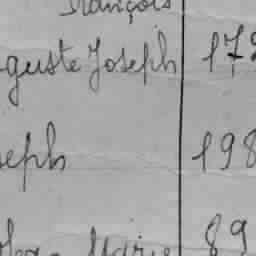 François
guste Joseph 172
seph 198
Marie 89